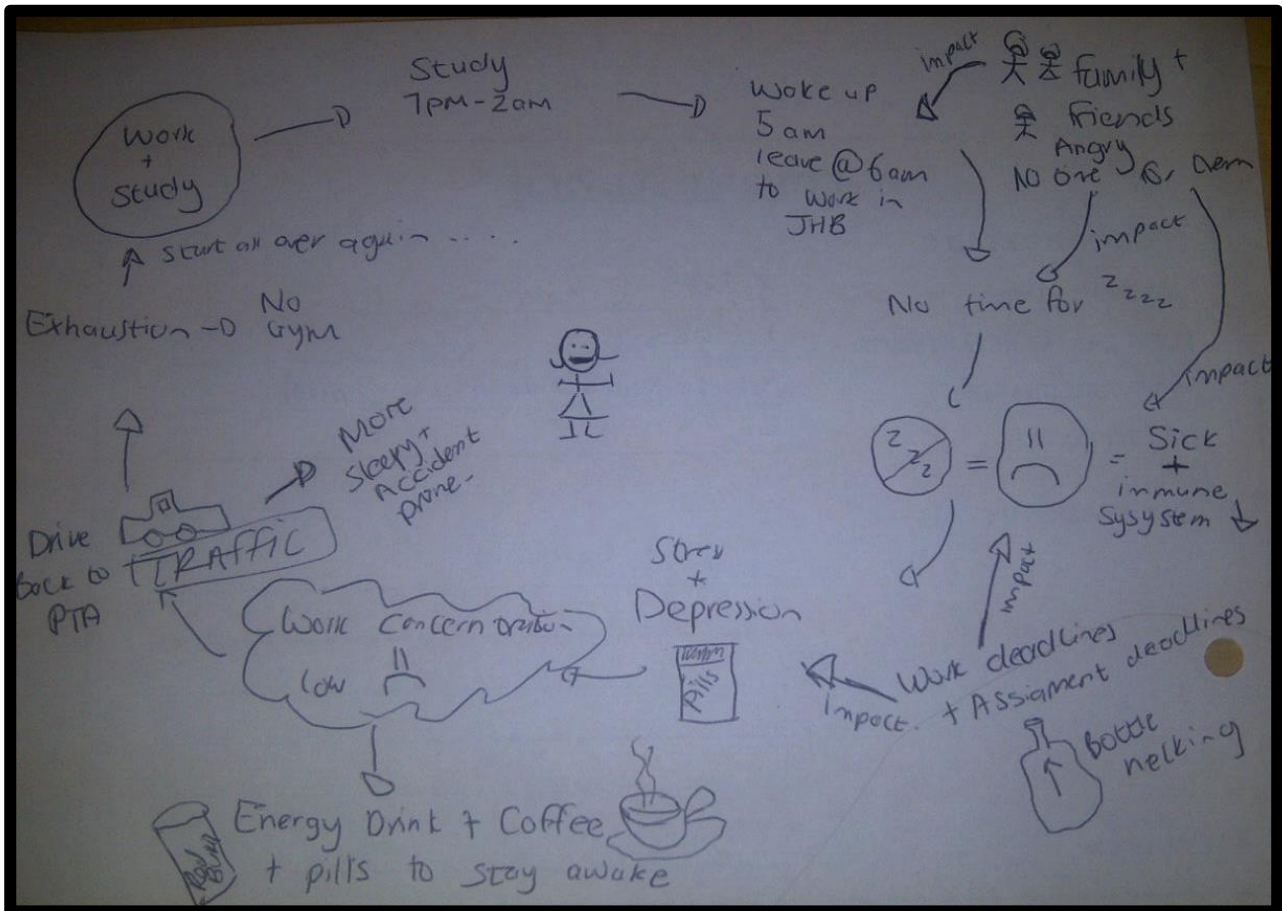 Work
+
Study
Study
7pm-2am
Woke up
5am
leave @ 6am
to work in
JHB
impact
family +
friends
Angry
No one for them
impact
impact
No time for zzzz
zzz
=
=
Sick
+
immune
Sysystem
impact
Work deadlines
+ Assignment deadlines
Bottle
necking
impact.
Stress
+
Depression
Pills
Work Concerntration
low
Energy Drink + Coffee
+ pills to stay awake
Red
Bull
Drive
back to
PTA
TRAFFiC
More
Sleepy +
Accident
prone-
Exhaustion
No
Gym
Start all over again .....